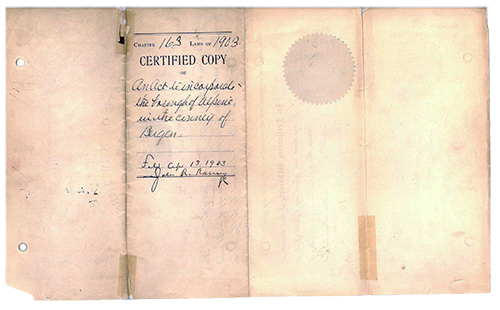 CHAPTER 163 LAWS OF 1903.
CERTIFIED COPY
OF
An Act to incorporate
the borough of Alpine,
in the county of
Bergen.
Filed Apr. 13 1903
John R.